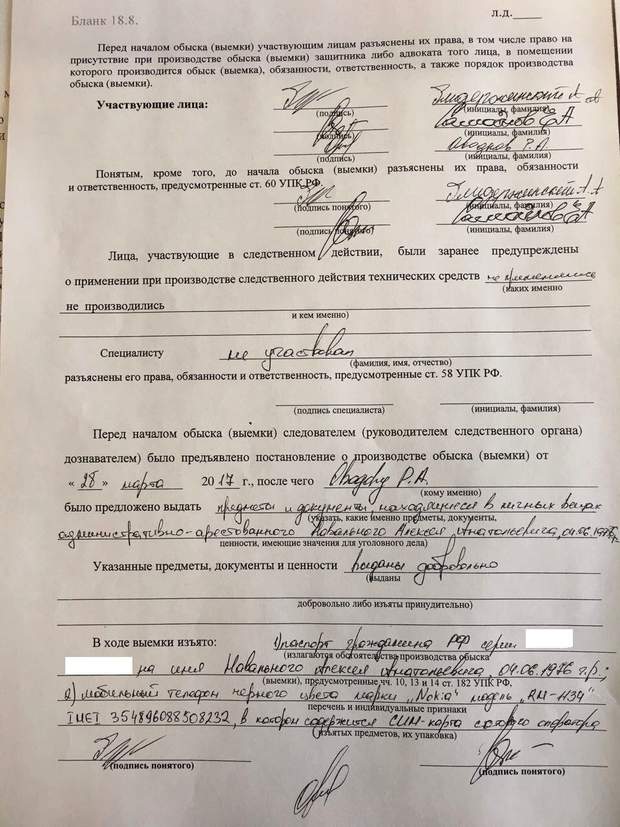 Бланк 18.8.
Л.Д.____
Перед началом обыска (выемки) участвующим лицам разъяснены их права, в том числе право на
присутствие при производстве обыска (выемки) защитника либо адвоката того лица, в помещении
которого производится обыск (выемка), обязанности, ответственность, а также порядок производства
обыска (выемки).
Участвующие лица:
(подпись) (инициалы, фамилия)
(подпись) (инициалы, фамилия)
Овадков Р.А.
(подпись) (инициалы, фамилия)
Понятым, кроме того, до начала обыска (выемки) разъяснены их права, обязанности
и ответственность, предусмотренные ст. 60 УПК РФ.
(подпись понятого) (инициалы, фамилия)
(подпись понятого) (инициалы, фамилия)
Лица, участвующие в следственном действии, были заранее предупреждены
о применении при производстве следственного действия технических средств не применялись
(каких именно
не производились
и кем именно)
Специалисту не участвовал
(фамилия, имя, отчество)
разъяснены его права, обязанности и ответственность, предусмотренные ст. 58 УПК РФ.
(подпись специалиста) (инициалы, фамилия)
Перед началом обыска (выемки) следователем (руководителем следственного органа)
дознавателем) было предъявлено постановление о производстве обыска (выемки) от
« 28 » марта 2017 г., после чего Р.А.
(кому именно)
было предложено выдать предметы и документы, находящиеся в личных вещах
(указать, какие именно предметы, документы,
административно-арестованного Навального Алексея Анатольевича, 04.06.1976
ценности, имеющие значения для уголовного дела)
Указанные предметы, документы и ценности выданы добровольно
(выданы
добровольно или изъяты принудительно)
В ходе выемки изъято: 1) паспорт гражданина РФ серии
(излагаются обстоятельства производства обыска
на имя Навального Алексея Анатольевича, 04.06.1976 г.р.;
(выемки), предусмотренные чч. 10, 13 и 14 ст. 182 УПК РФ,
2) мобильный телефон черного цвета марки "Nokia" модель "RM-1134"
перечень и индивидуальные признаки
IMEI 354896088508232, в котором содержится СИМ-карта сотового оператора
изъятых предметов, их упаковка)
(подпись понятого) (подпись понятого)